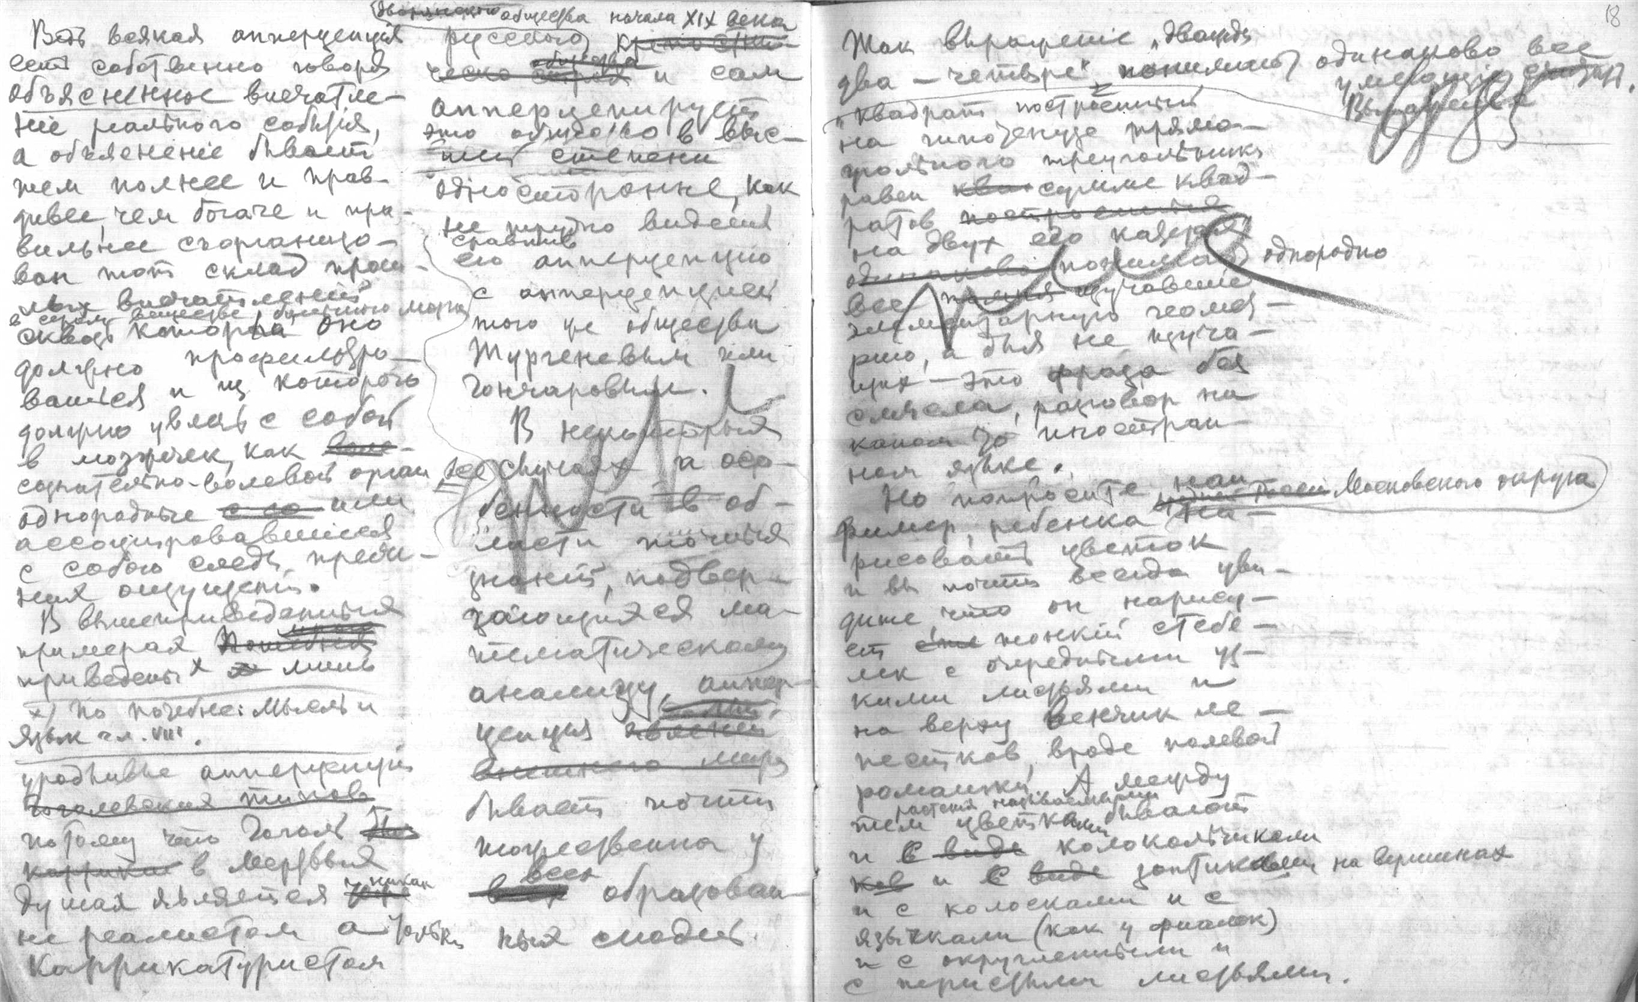 Ведь всякая апперцепция
есть собственно говоря
объясненное впечатле-
ние реального события,
а объясненіе бывает
тем полнее и прав-
дивее, чем богаче и пра-
вильнее сорганизо-
ван тот склад прош-
лых впечатлений
в сером веществе большого мозга
сквозь который оно
должно профильтро-
ваться и из которого
должно увлечь с собой
в мозжечек, как
сознательно-волевой орган, все
однородные или
ассоциировавшиеся
с собою следы преж-
них ощущений.
В вышеприведенных
примерах
приведены х лишь
х) по
язык гл. VIII.
уродливые апперцепции
гоголевских типов
потому что Гоголь
в Мертвых
душах является никак
не реалистом а только
каррикатуристом
дворянского общества начала XIX века
русского
общества и сам
апперципирует
это общество в выс-
шей степени
односторонне, как
не трудно видеть
сравнив
его апперцепцию
с апперцепцией
того же общества
Тургеневым или
Гончаровым.
В некоторых
случаях и осо-
бенности в об-
ласти точных
знаний, подвер-
гающихся ма-
тематическому
анализу, аппер-
цепция
внешнего мира
бывает почти
тождественна у
всех образован-
ных людей.
18
Так выражение „дважды
два — четыре" понимают одинаково все
умеющие считать.
Выражение
„квадрат построенный
на гипотенузе прямо-
угольного треугольника
равен сумме квад-
ратов построенных
на двух его катетах
одинаково понимают однородно
все изучавшие
элементарную геомет-
рию, а для не изуча-
щих — это фраза без
смысла, разговор на
каком то иностран-
ном языке.
Но попросите, нап-
ример, ребенка Московского округа на-
рисовать цветок
и вы почти всегда уви-
дите, что он нарису-
ет тонкий стебе-
лек с очередными уз-
кими листьями и
на верху венчик ле-
пестков, вроде полевой
ромашки. А между
тем растения называемыя
цветками бывают
и в виде колокольчиками
и в виде зонтиками на вершинах
и с колосками и с
язычками (как у фиалок)
и с округленными и
с перистыми листьями.